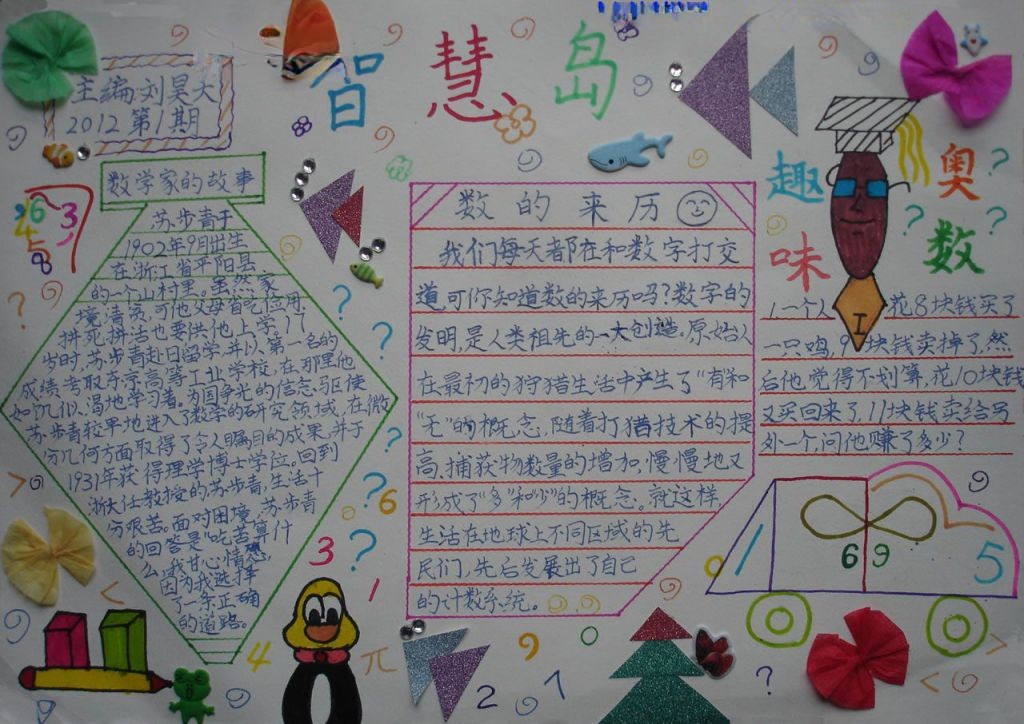 智慧岛
主编:刘昊天
2012第1期
数学家的故事
苏步青于
1902年9月出生
在浙江省平阳县
的一个山村里。虽然家
境清贫,可他父母省吃俭用,
拼死拼活也要供他上学。17
岁时,苏步青赴日留学,并以第一名的
成绩考取东京高等工业学校,在那里他
如饥似渴地学习着。为国争光的信念,驱使
苏步青较早地进入了数学的研究领域,在微
分几何方面取得了令人瞩目的成果,并于
1931年获得理学博士学位。回到
浙大任教授的苏步青,生活十
分艰苦。面对困境,苏步青
的回答是"吃苦算什
么,我甘心情愿,
因为我选择
了一条正确
的道路。
数的来历
我们每天都在和数字打交
道,可你知道数的来历吗?数字的
发明,是人类祖先的一大创造。原始人
在最初的狩猎生活中产生了"有和
"无"的概念,随着打猎技术的提
高,捕获物数量的增加,慢慢地又
形成了"多"和"少"的概念。就这样,
生活在地球上不同区域的先
民们,先后发展出了自己
的计数系统。
趣味
奥数
1.一个人花8块钱买了
一只鸡,9块钱卖掉了,然
后他觉得不划算,花10块钱
又买回来了,11块钱卖给另
外一个,问他赚了多少?
6 3
4 5 8
6
3
1
4
π
2
9
0
7
1
6 9
5
I